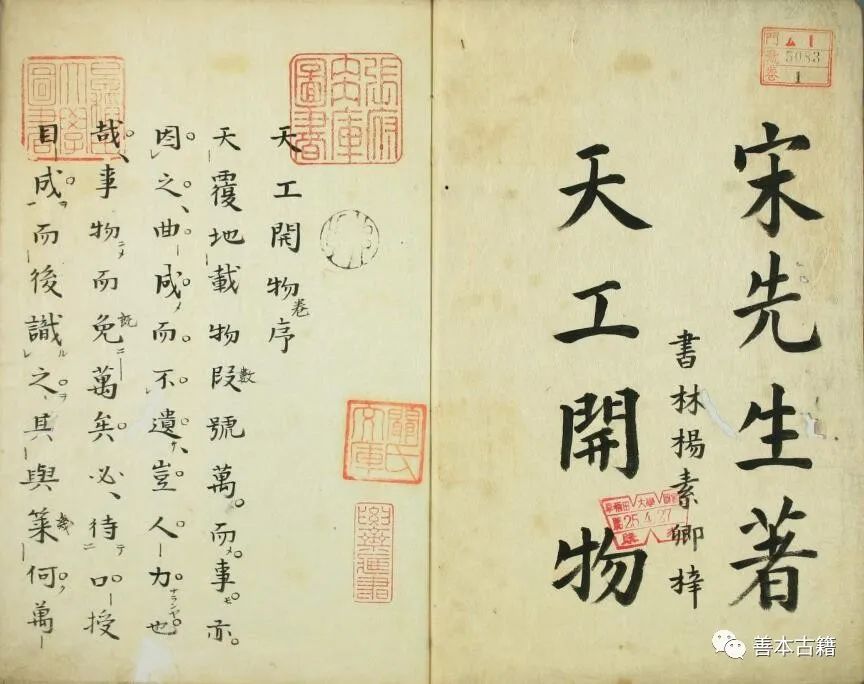 宋先生著
天工開物
書林楊素卿梓
天工開物卷序
天覆地載物段數號萬而事亦
因之曲成而不遺豈人力也
哉事物而既免萬矣必待口授
目成而後識之其與築幾何萬
張府
文庫
圖書
5083
1
早稻田大學圖書
25.4.27
善本古籍